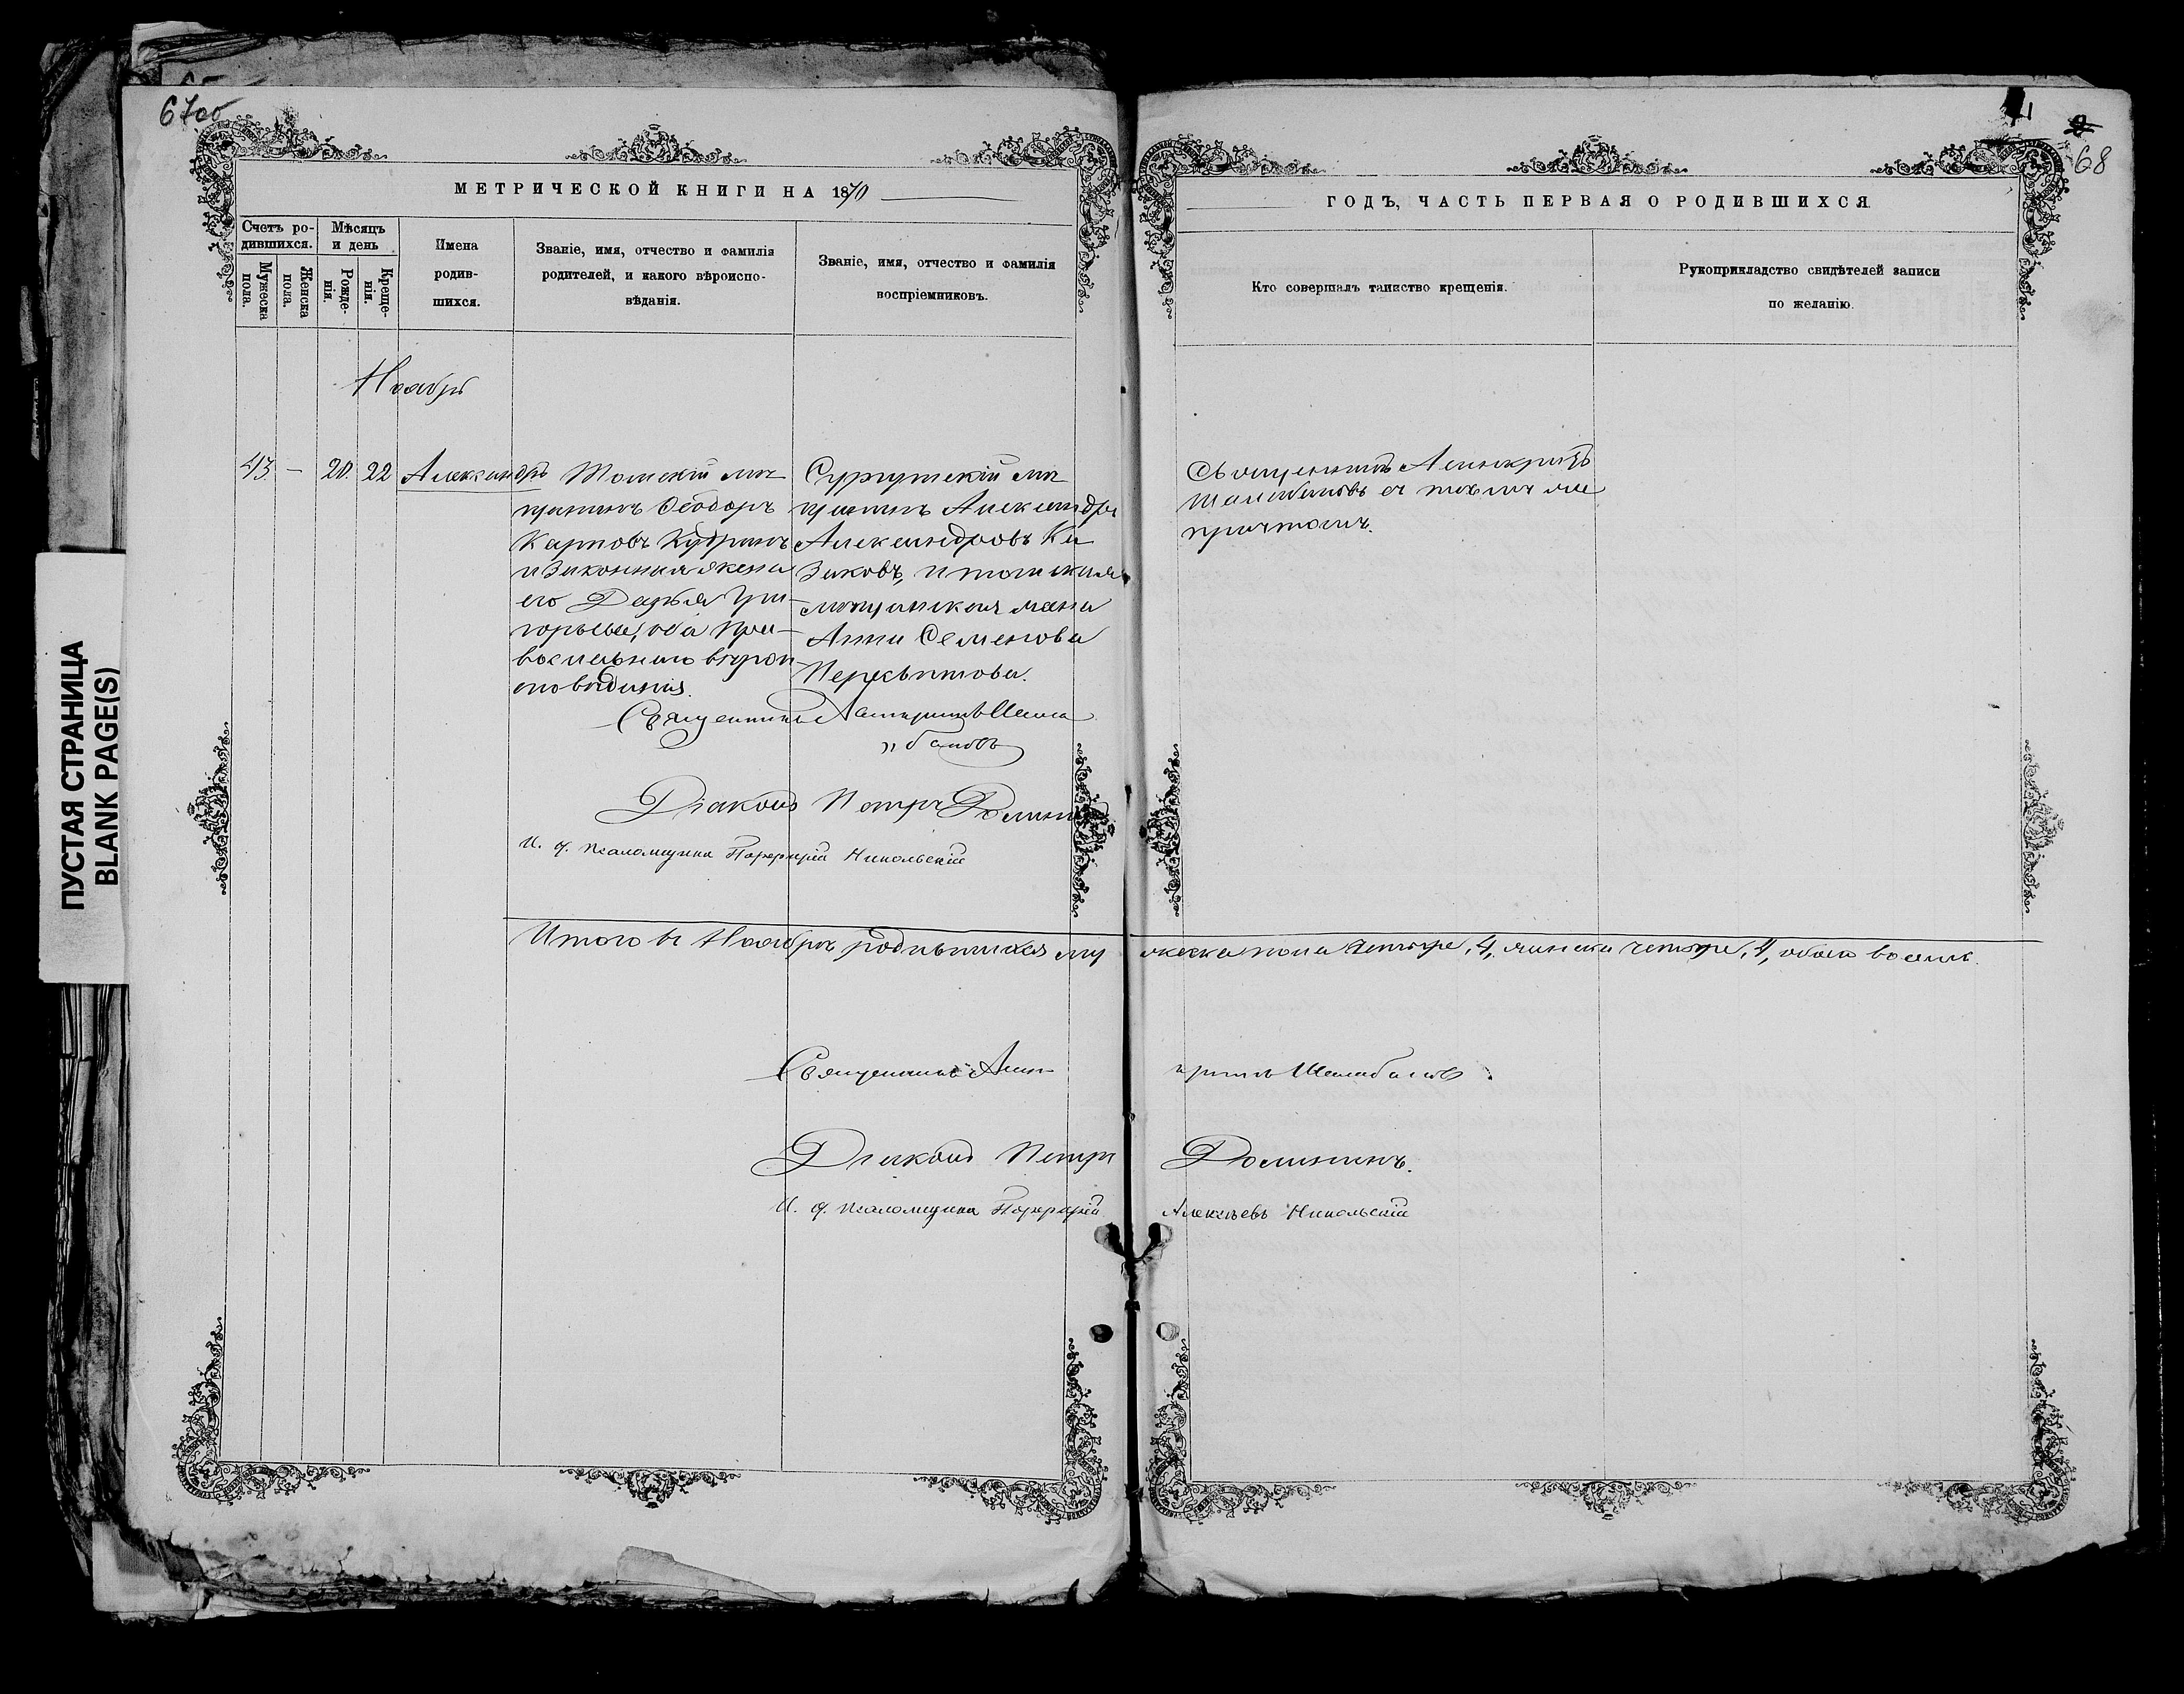 67об
68
ПУСТАЯ СТРАНИЦА
BLANK PAGE(S)
МЕТРИЧЕСКОЙ КНИГИ НА 1870
ГОДЪ, ЧАСТЬ ПЕРВАЯ О РОДИВШИХСЯ
Счетъ ро-
дившихся.
Мужеска
пола.
Женска
пола.
Мѣсяцъ
и день
Рожде-
нія.
Креще-
нія.
Имена
родив-
шихся.
Званіе, имя, отчество и фамилія
родителей, и какого вѣроиспо-
вѣданія.
Званіе, имя, отчество и фамилія
воспріемниковъ.
Кто совершалъ таинство крещенія.
Рукоприкладство свидѣтелей записи
по желанію.
Ноябрь
43. – 20. 22 Александръ
Томскій мѣ-
щанинъ Ѳеодоръ
Карповъ Кудринъ
и законная жена
его Дарья Гри-
горьева, оба пра-
вославнаго вѣрои-
сповѣданія.
Сургутскій мѣ
щанинъ Александръ
Александровъ Ка
заковъ, и томская
мѣщанская жена
Анна Семенова
Перевитова.
Священникъ Асинкритъ
Шалабановъ съ тѣмъ же
причтомъ.
Священникъ Асинкритъ Шала
„бановъ
Діаконъ Петръ Домининъ
И. д. псаломщика Порфирій Никольскій
Итого въ Ноябрѣ родившихся му жеска пола четыре, 4, женска четыре, 4, обоего восемь.
Священникъ Асин критъ Шалабановъ.
Діаконъ Петръ Домининъ.
И. д. псаломщика Порфирій Алексѣевъ Никольскій